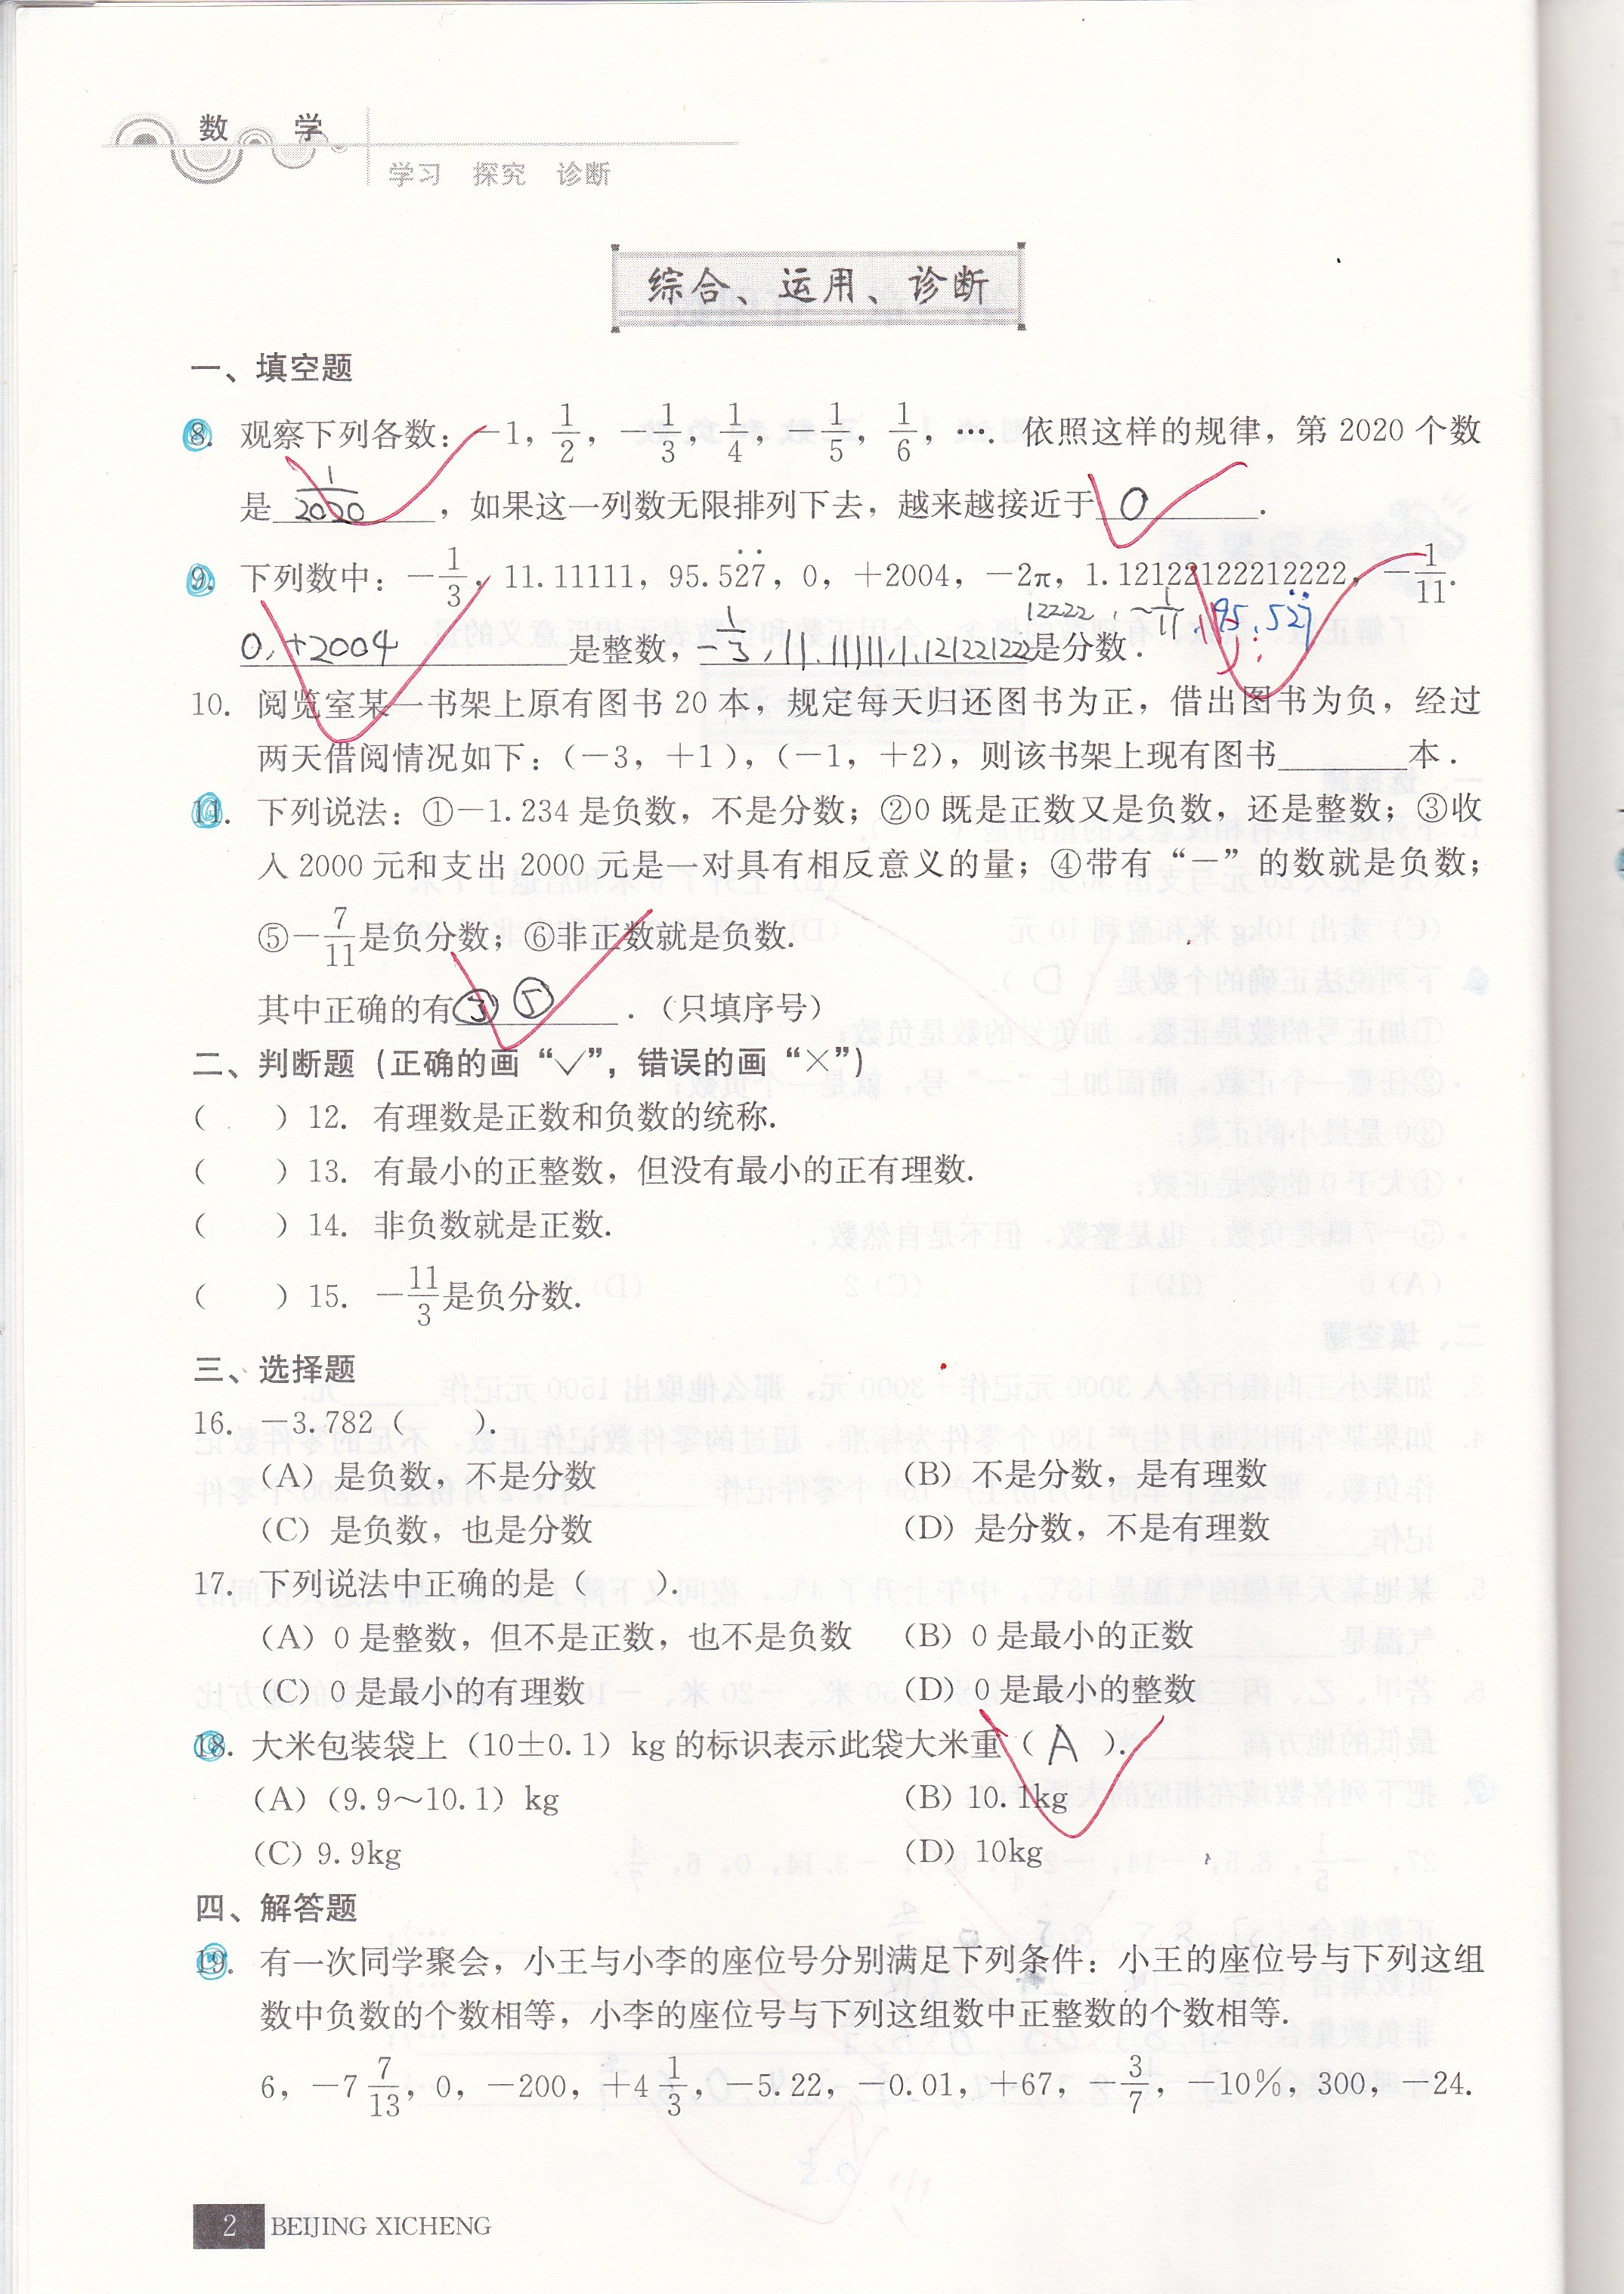 数 学
学习 探究 诊断
综合、运用、诊断
一、填空题
8. 观察下列各数：－1，1/2，－1/3，1/4，－1/5，1/6，…. 依照这样的规律，第 2020 个数
是 1/2020 ，如果这一列数无限排列下去，越来越接近于 0 .
9. 下列数中：－1/3，11.11111，95.52̇7̇，0，＋2004，－2π，1.12122122212222，－1/11.
12222，－1/11，95.52̇7̇
0，+2004 是整数，－1/3，11.11111，1.12122122 是分数.
10. 阅览室某一书架上原有图书 20 本，规定每天归还图书为正，借出图书为负，经过
两天借阅情况如下：(－3，＋1)，(－1，＋2)，则该书架上现有图书________本.
11. 下列说法：①－1.234 是负数，不是分数；②0 既是正数又是负数，还是整数；③收
入 2000 元和支出 2000 元是一对具有相反意义的量；④带有“－”的数就是负数；
⑤－7/11是负分数；⑥非正数就是负数.
其中正确的有 ③ ⑤ .（只填序号）
二、判断题（正确的画“√”，错误的画“×”）
（　　）12. 有理数是正数和负数的统称.
（　　）13. 有最小的正整数，但没有最小的正有理数.
（　　）14. 非负数就是正数.
（　　）15. －11/3是负分数.
三、选择题
16. －3.782（　　）.
(A) 是负数，不是分数 (B) 不是分数，是有理数
(C) 是负数，也是分数 (D) 是分数，不是有理数
17. 下列说法中正确的是（　　）.
(A) 0 是整数，但不是正数，也不是负数 (B) 0 是最小的正数
(C) 0 是最小的有理数 (D) 0 是最小的整数
18. 大米包装袋上（10±0.1）kg 的标识表示此袋大米重（ A ）.
(A)（9.9～10.1）kg (B) 10.1kg
(C) 9.9kg (D) 10kg
四、解答题
19. 有一次同学聚会，小王与小李的座位号分别满足下列条件：小王的座位号与下列这组
数中负数的个数相等，小李的座位号与下列这组数中正整数的个数相等.
6，－7 7/13，0，－200，＋4 1/3，－5.22，－0.01，＋67，－3/7，－10%，300，－24.
2 BEIJING XICHENG